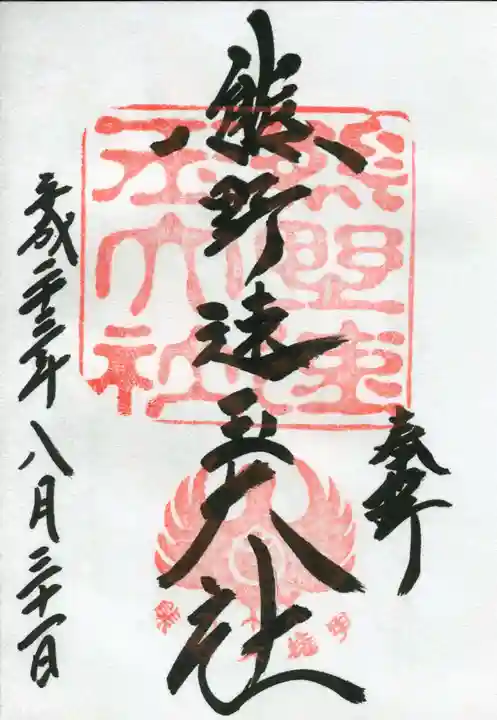 奉拝
熊野速玉大社
平成二十三年八月三十一日
熊野速
玉大社